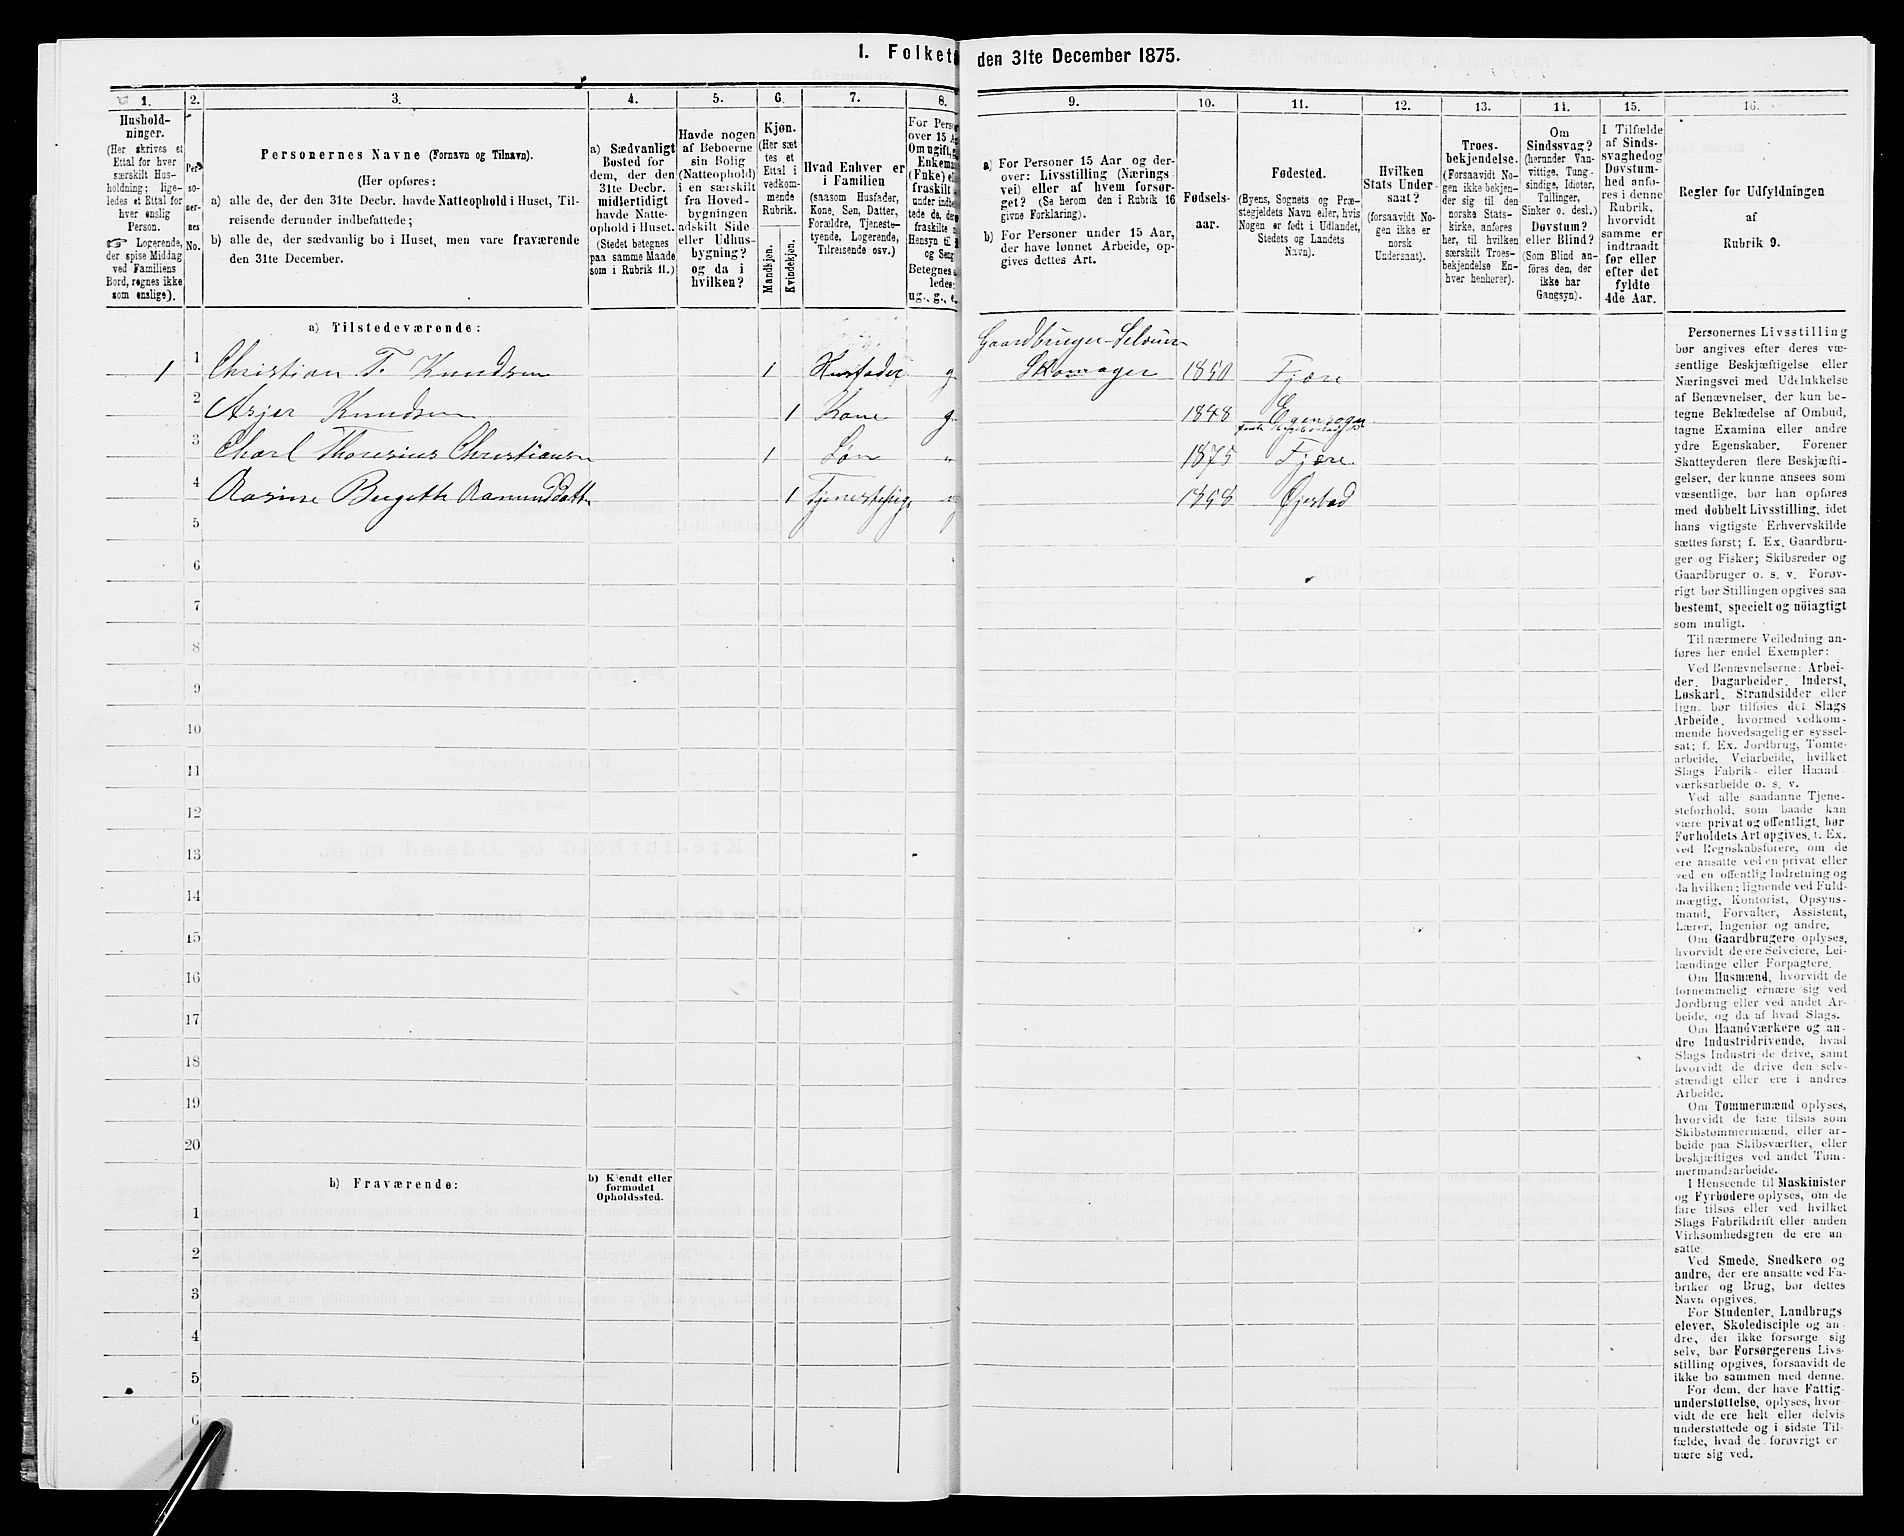 1. Folket
den 31te December 1875.
1. 2. 3. 4. 5. 6. 7. 8. 9. 10. 11. 12. 13. 14. 15. 16.
Hushold-
ninger.
(Her skrives et
Ettal for hver
særskilt Hus-
holdning; lige-
ledes et Ettal for
hver enslig
Person.
☞ Logerende,
der spise Middag
ved Familiens
Bord, regnes ikke
som enslige).
Per-
so-
ner-
nes
No.
Personernes Navne (Fornavn og Tilnavn).
(Her opføres:
a) alle de, der den 31te Decbr. havde Natteophold i Huset, Til-
reisende derunder indbefattede;
b) alle de, der sædvanlig bo i Huset, men vare fraværende
den 31te December.
a) Sædvanligt
Bosted for
dem, der den
31te Decbr.
midlertidigt
havde Natte-
ophold i Huset.
(Stedet betegnes
paa samme Maade
som i Rubrik 11.)
Havde nogen
af Beboerne
sin Bolig
(Natteophold)
i en særskilt
fra Hoved-
bygningen
adskilt Side
eller Udhus-
bygning?
og da i
hvilken?
Kjøn.
(Her sæt
tes et
Ettal i
vedkom-
mende
Rubrik.
Mandkjøn.
Kvindekjøn.
Hvad Enhver er
i Familien
(saasom Husfader,
Kone, Søn, Datter,
Forældre, Tjeneste-
tyende, Logerende,
Tilreisende osv.)
For Perso
over 15 A
Om ugift,
Enkema
(Enke) e
fraskilt
under indbe
tede de, der
fraskilte
Hensyn til
og Seng
Betegnes
ledes:
ug., g., e.
a) For Personer 15 Aar og der-
over: Livsstilling (Nærings
vei) eller af hvem forsør-
get? (Se herom den i Rubrik 16
givne Forklaring).
b) For Personer under 15 Aar,
der have lønnet Arbeide, op-
gives dettes Art.
Fødsels-
aar.
Fødested.
(Byens, Sognets og Præ-
stegjeldets Navn eller, hvis
Nogen er født i Udlandet,
Stedets og Landets
Navn).
Hvilken
Stats Under-
saat?
(forsaavidt No-
gen ikke er
norsk
Undersaat).
Troes-
bekjendelse.
(Forsaavidt No-
gen ikke bekjen-
der sig til den
norske Stats-
kirke, anføres
her, til hvilken
særskilt Troes-
bekjendelse En-
hver henhører).
Om
Sindssvag?
(herunder Van-
vittige, Tung-
sindige, Idioter,
Tullinger,
Sinker o. desl.)
Døvstum?
eller Blind?
(Som Blind an-
føres den, der
ikke har
Gangsyn).
I Tilfælde
af Sinds-
svaghedog
Døvstum-
hed anfø-
res i denne
Rubrik,
hvorvidt
samme er
indtraadt
før eller
efter det
fyldte
4de Aar.
Regler for Udfyldningen
af
Rubrik 9.
a) Tilstedeværende:
Gaardbruger
1 1 Christian T. Knudsen 1 Husfader g. Skomager 1850 Fjære
2 Asjer Knudsen 1 Kone g. 1848 Egensogn
3 Charl Thonesius Christiansen 1 Søn „ 1875 Fjære.
4 Aasine Bergeth Aamunddatt 1 1858 Øjestad
5
6
7
8
9
10
11
12
13
14
15
16
17
18
19
20
b) Fraværende:
b) Kjendt eller
formodet
Opholdssted.
1
2
3
4
5
6
Personernes Livsstilling
bør angives efter deres væ-
sentlige Beskjæftigelse eller
Næringsvei med Udelukkelse
af Benævnelser, der kun be-
tegne Beklædelse af Ombud,
tagne Examina eller andre
ydre Egenskaber. Forener
Skatteyderen flere Beskjæfti-
gelser, der kunne ansees som
væsentlige, bør han opføres
med dobbelt Livsstilling, idet
hans vigtigste Erhvervskilde
sættes først; f. Ex. Gaardbru-
ger og Fisker; Skibsreder og
Gaardbruger o. s. v. Forøv-
rigt bør Stillingen opgives saa
bestemt, specielt og nöiagtigt
som muligt.
Til nærmere Veiledning an-
føres her endel Exempler:
Ved Benævnelserne: Arbei-
der, Dagarbeider, Inderst,
Løskarl, Strandsidder eller
lign. bør tilføies det Slags
Arbeide, hvormed vedkom-
mende hovedsagelig er syssel-
sat; f. Ex. Jordbrug, Tomte-
arbeide, Veiarbeide, hvilket
Slags Fabrik- eller Haand-
værksarbeide o. s. v.
Ved alle saadanne Tjene-
steforhold, som baade kan
være privat og offentligt, bør
Forholdets Art opgives, t. Ex.
ved Regnskabsførere, om de
ere ansatte ved en privat eller
ved en offentlig Indretning og
da hvilken; lignende ved Fuld-
mægtig, Kontorist, Opsyns-
mand, Forvalter, Assistent,
Lærer, Ingeniør og andre.
Om Gaardbrugere oplyses,
hvorvidt de ere Selveiere, Lei-
lændinge eller Forpagtere.
Om Husmænd, hvorvidt de
fornemmelig ernære sig ved
Jordbrug eller ved andet Ar-
beide, og da af hvad Slags.
Om Haandværkere og an-
dre Industridrivende, hvad
Slags Industri de drive, samt
hvorvidt de drive den selv-
stændigt eller ere i andres
Arbeide.
Om Tømmermænd oplyses,
hvorvidt de fare tilsøs som
Skibstømmermænd, eller ar-
beide paa Skibsværfter, eller
beskjæftiges ved andet Tøm-
mermandsarbeide.
I Henseende til Maskinister
og Fyrbødere oplyses, om de
fare tilsøs eller ved hvilket
Slags Fabrikdrift eller anden
Virksomhedsgren de ere an-
satte.
Ved Smede, Snedkere og
andre, der ere ansatte ved Fa-
briker og Brug, bør dettes
Navn opgives.
For Studenter, Landbrugs
elever, Skoledisciple og an-
dre, der ikke forsørge sig
selv, bør Forsørgerens Livs-
stilling opgives, forsaavidt de
ikke bo sammen med denne.
For dem, der have Fattig-
understøttelse, oplyses, hvor-
vidt de ere helt eller delvis
understøttede og i sidste Til-
fælde, hvad de forøvrigt er
nære sig ved.